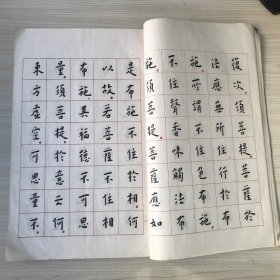 復次須菩提菩薩於
法應無所住行於布
施所謂不住色布施
不住聲香味觸法布
施須菩提菩薩應如
是布施不住於相何
以故若菩薩不住相
布施其福德不可思
量須菩提於意云何
東方虛空可思量不